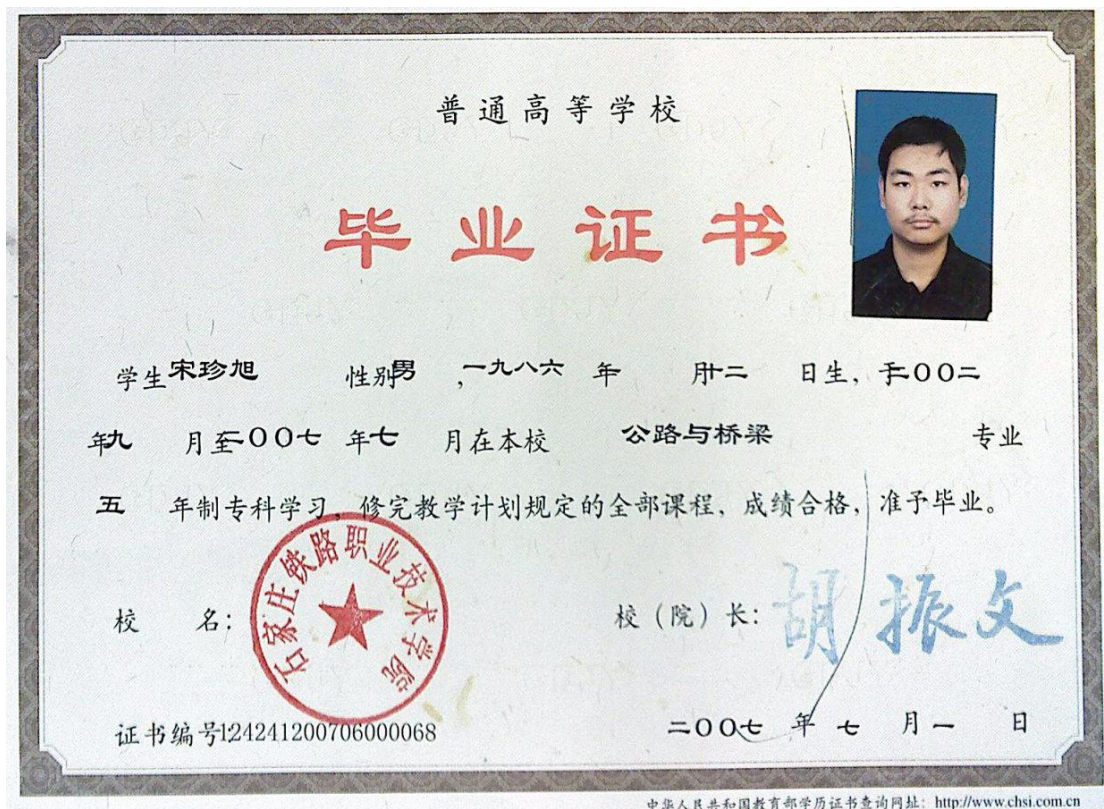 普通高等学校
毕业证书
学生宋珍旭 性别男 ,一九八六 年 月十二 日生,于二00二
年九 月至二00七 年七 月在本校 公路与桥梁 专业
五 年制专科学习,修完教学计划规定的全部课程,成绩合格,准予毕业。
石家庄铁路职业技术学院
校 名: 校(院)长: 胡振文
证书编号124241200706000068 二00七 年 七 月 一 日
中华人民共和国教育部学历证书查询网址: http://www.chsi.com.cn